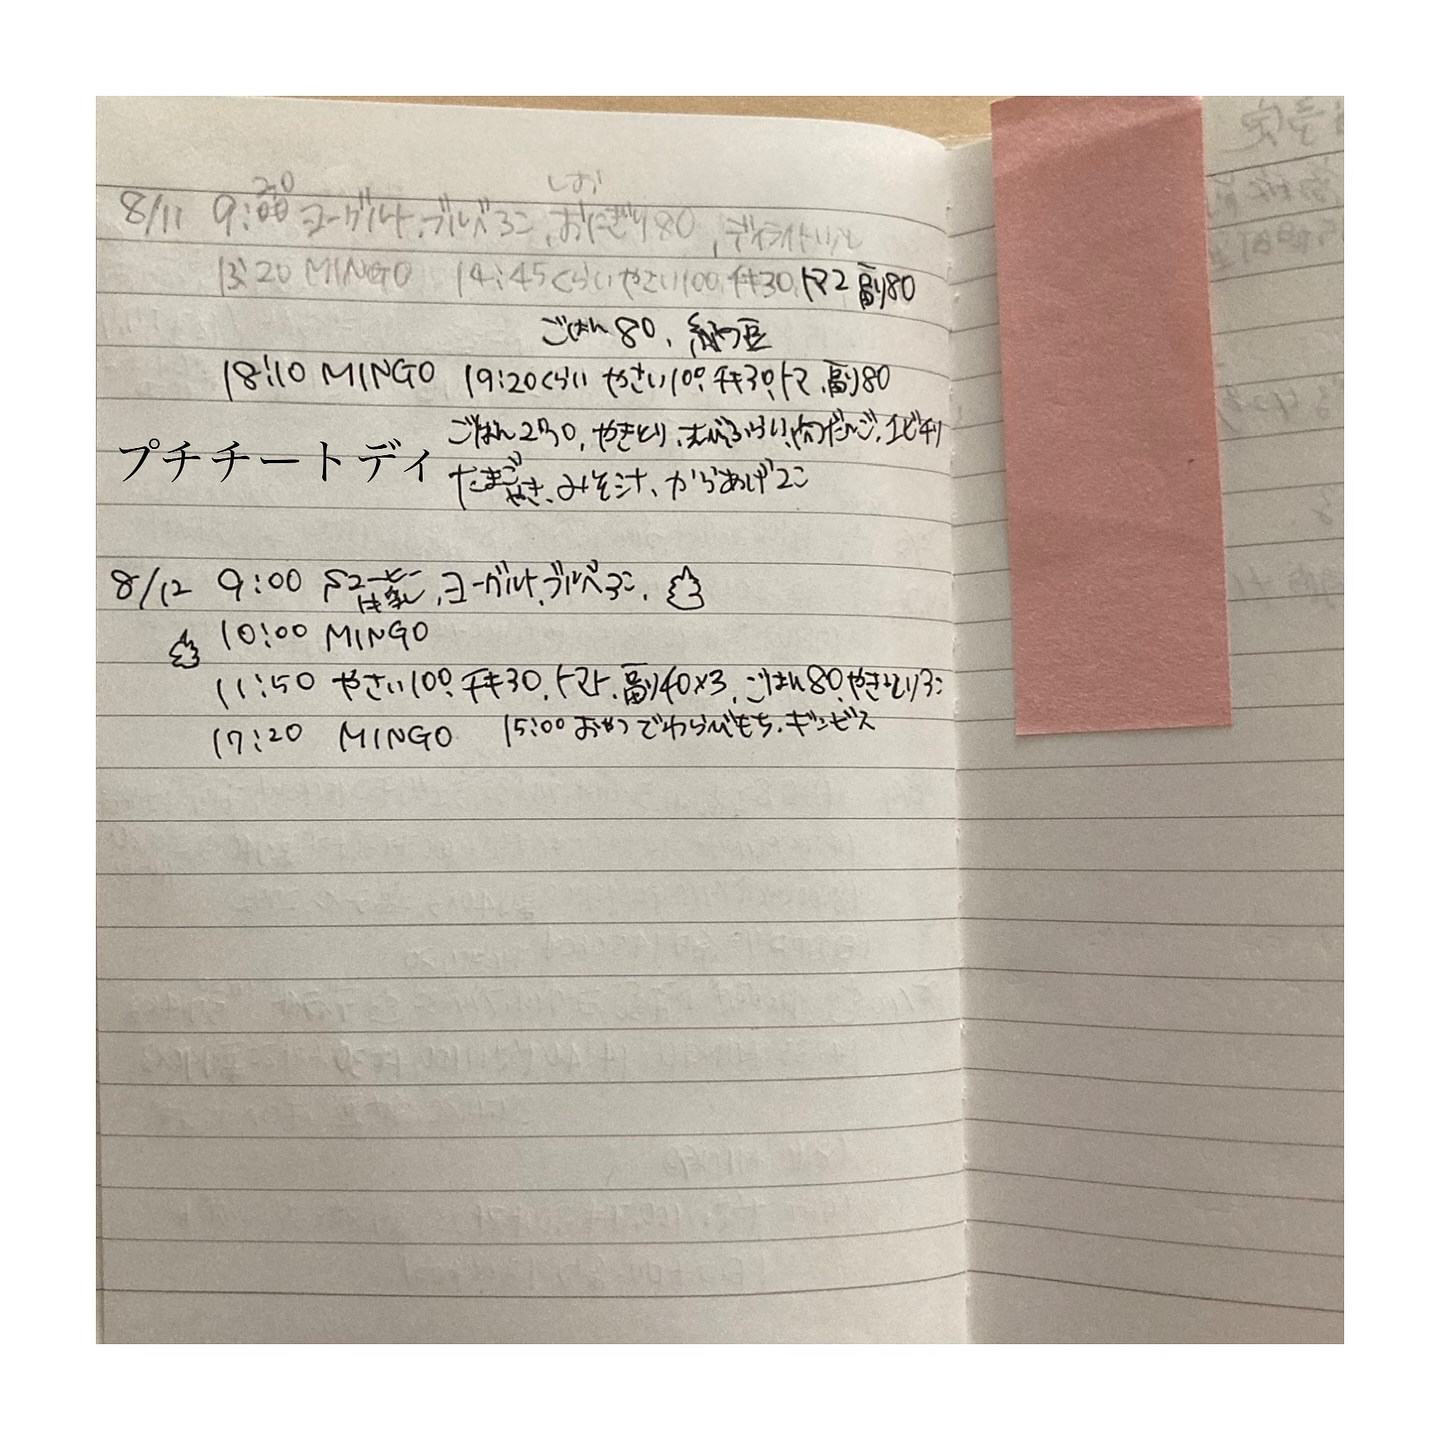 しお
8/11 9:20 ヨーグルト、ブルベ3こ、おにぎり80
13:20 MINGO 14:45くらい やさい100、チキ30、トマ2 副80
ごはん80、納豆
18:10 MINGO 19:20くらい やさい100、チキ30、トマ、副80
プチチートディ
ごはん 、やきとり、えびふらい、肉だんご、エビチリ
たまごやき、みそ汁、からあげ2こ
8/12 9:00 コーヒー、ヨーグルト、ブルベ3こ、
10:00 MINGO
11:50 やさい100、チキ30、トマト、副40×3、ごはん80、やきとり3こ
17:20 MINGO 15:00 おやつでわらびもち、ギンビス